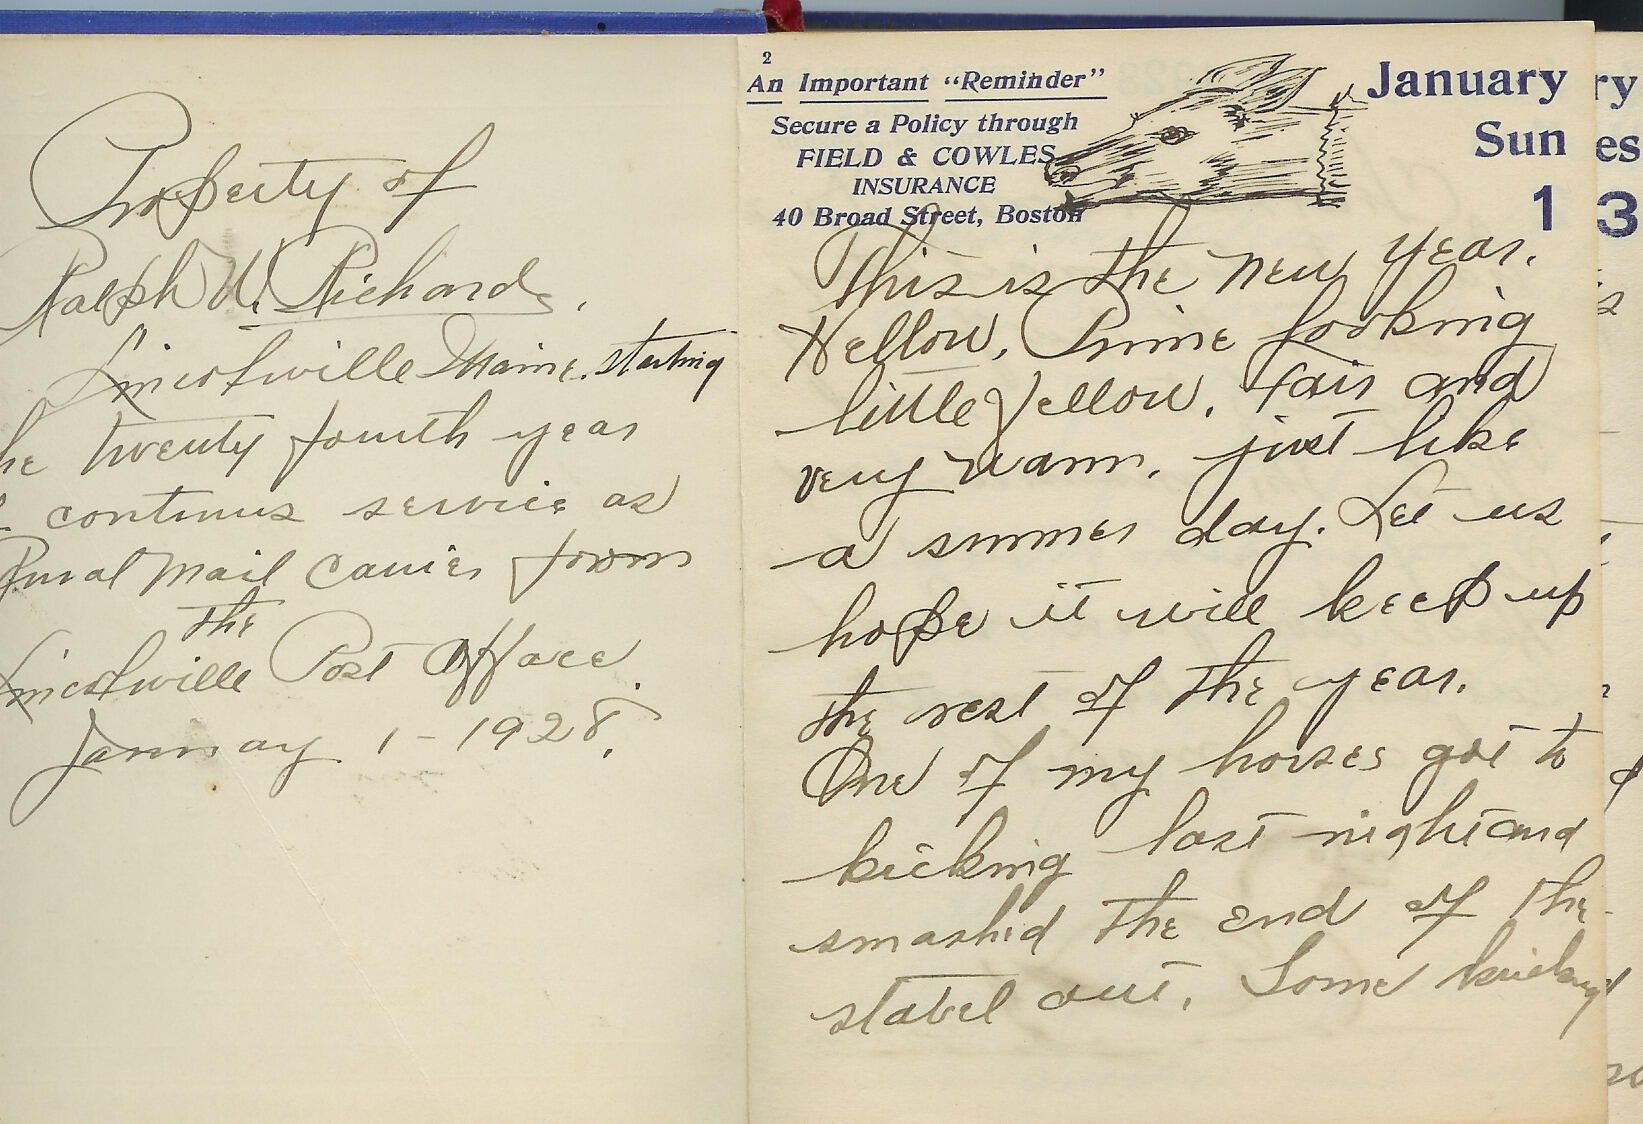 Property of
Ralph W. Richards.
Lincolnville Maine. starting
he twenty fourth year
continus service as
Rural Mail Carrier from
the
Lincolnville Post Offace.
January 1 - 1928.
2
An Important “Reminder”
Secure a Policy through
FIELD & COWLES
INSURANCE
40 Broad Street, Boston
January
Sun
1
This is the New Year.
Hellow. Prime looking
little fellow. Fair and
very warm. just like
a summer day. Let us
hope it will keep up
the rest of the year.
One of my horses got to
kicking last night and
smashed the end of the
stabel out. Some
ry
es
3